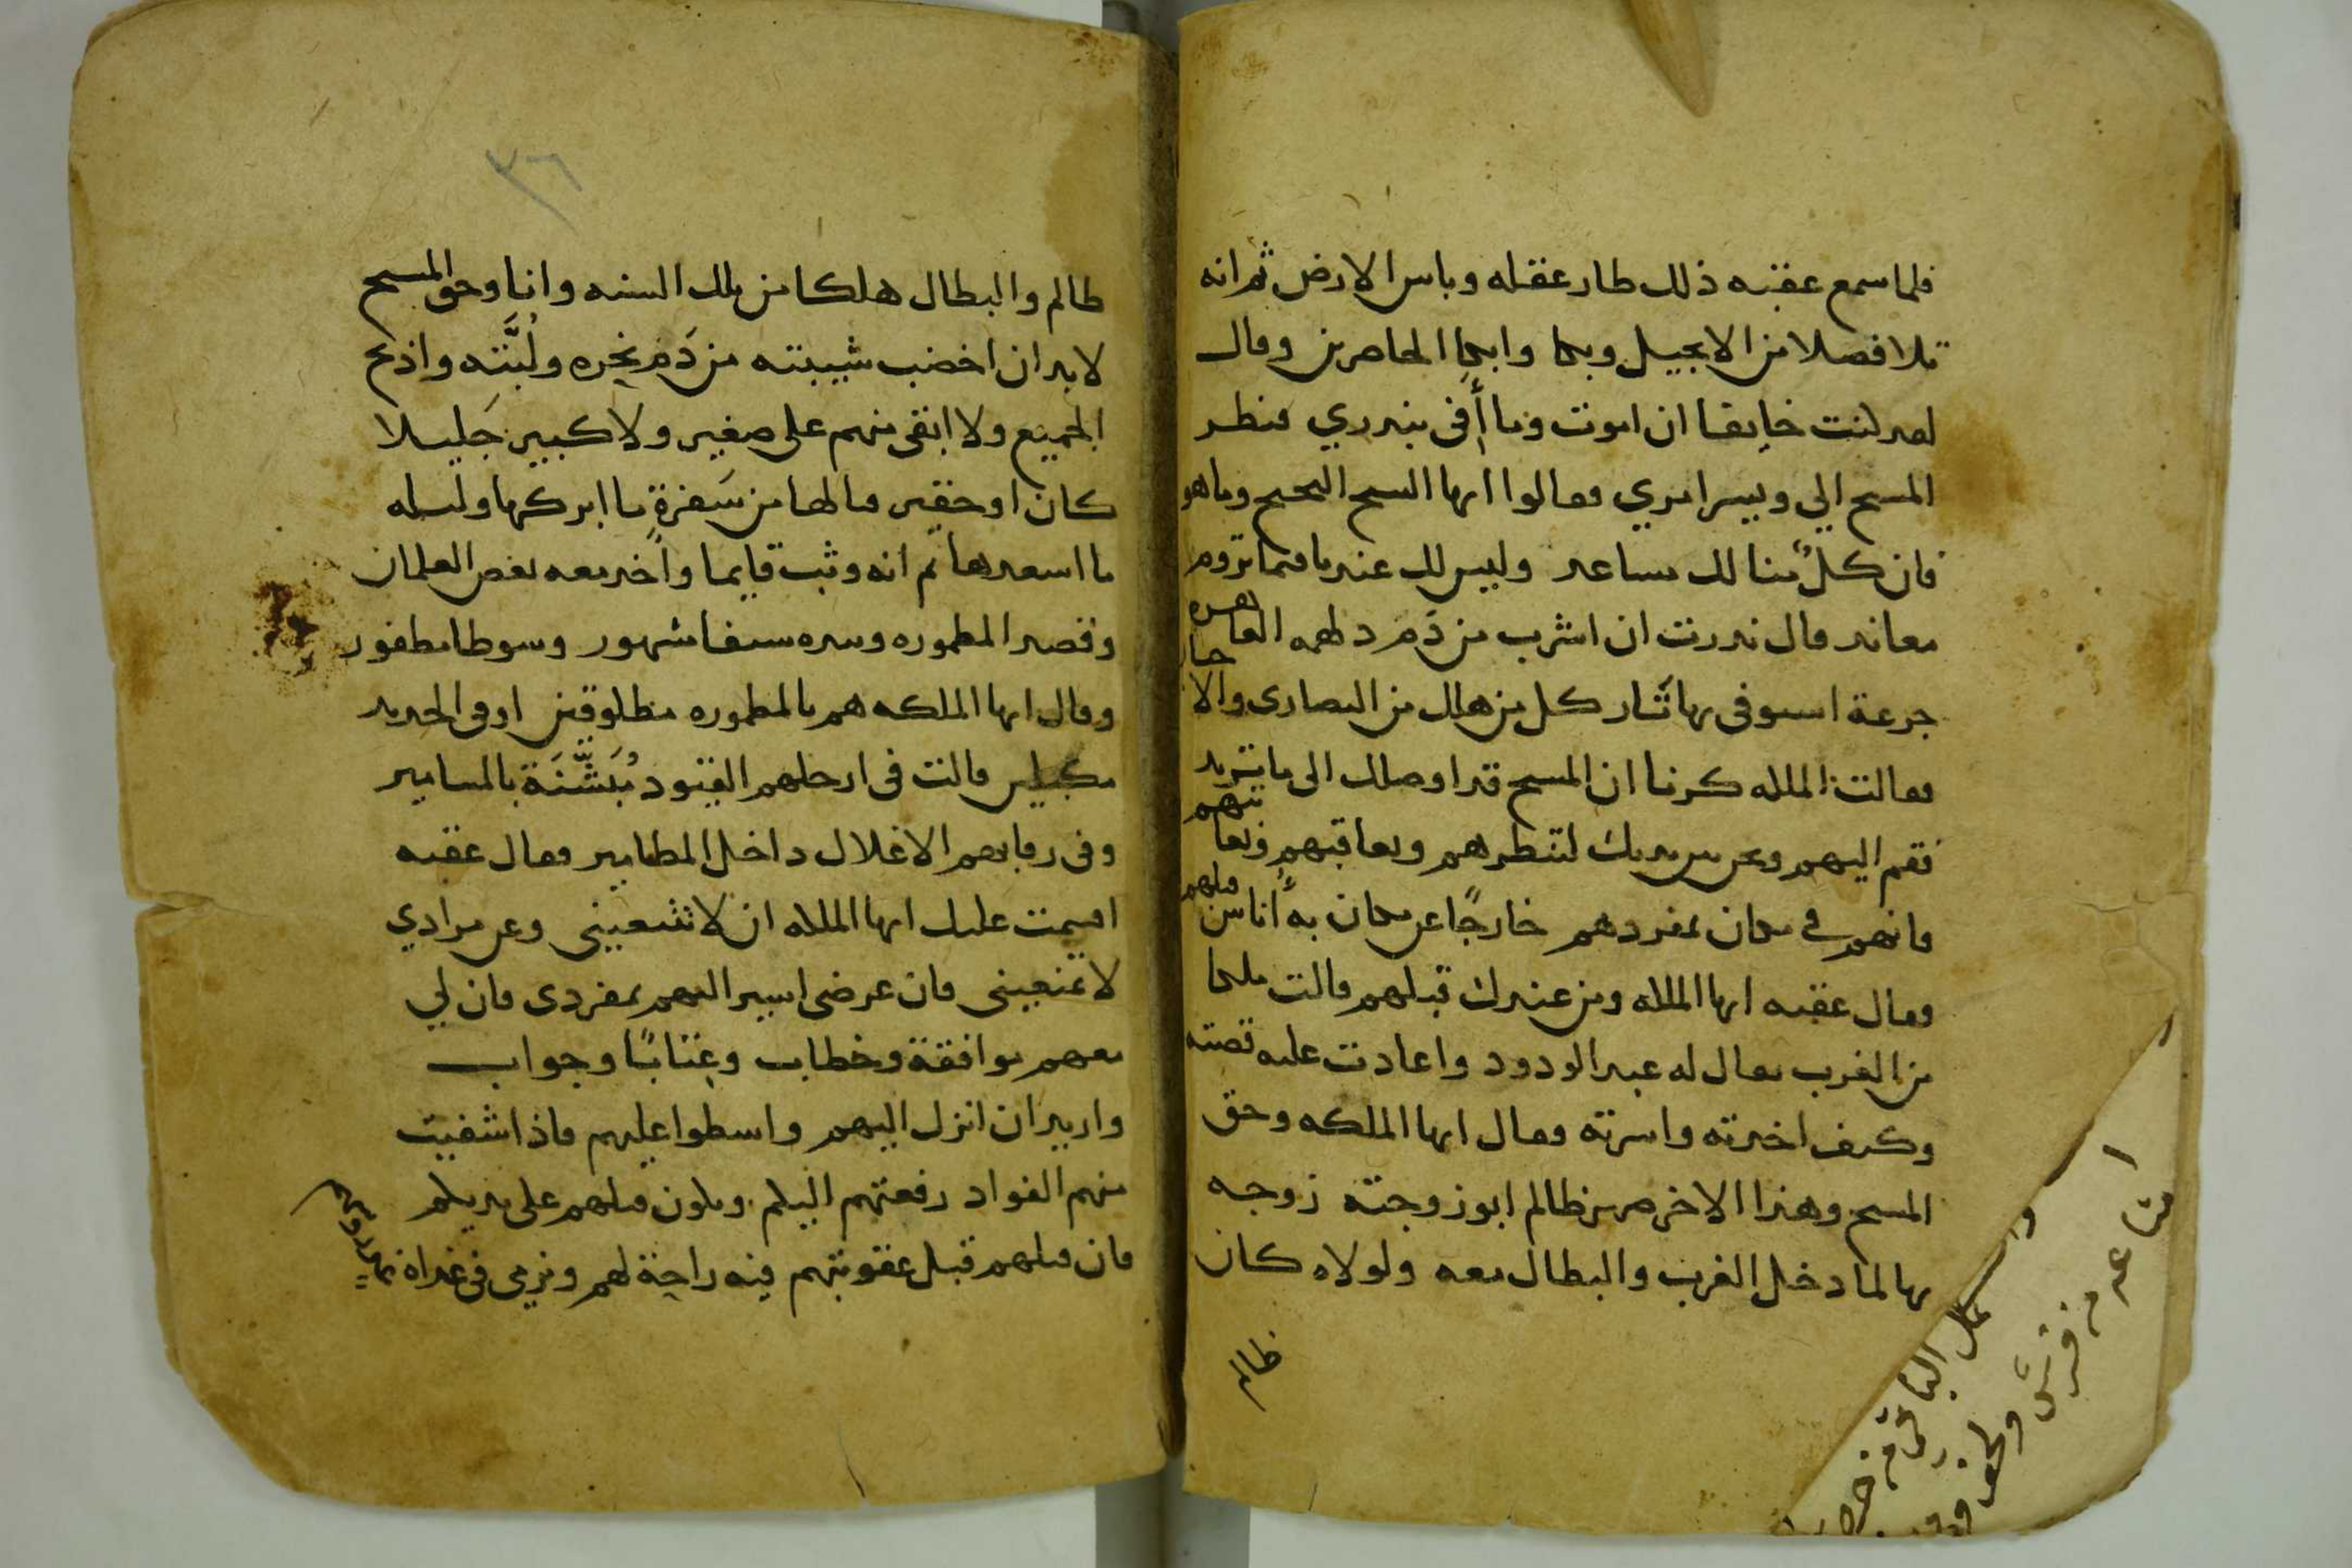 فلما سمع عقبه ذلك طار عقله وباس الارض ثم انه
تلا فصلا من الانجيل وبكا وابكا الحاضرين وقال
لقد كنت خايفا ان اموت وما أفى بندري فنظر
المسيح الي ويسر امري فقالوا ايها السيح البحيح وما هو
فان كلٌ منا لك مساعد وليس لك عندنا فيما تروم
معاند قال نذرت ان اشرب من دَم دلهمه الفاهره
جرعة استوفى بها ثَار كل من هلك من النصارى والاحبار
فقالت الملكه كرنا ان المسيح قد اوصلك الى ما تريد
فقم اليهم ونحن بين يديك لتنظرهم وتعاقبهم وتعاتبهم
فانهم في مكان بمفردهم خارجًا عن مكان به أناس قبلهم
فقال عقبه ايها الملكه ومن عندك قبلهم قالت ملكا
من الغرب يقال له عبد الودود واعادت عليه قصته
وكيف اخذته واسرته فقال ايها الملكه وحق
المسيح وهذا الاخر من ظالم ابو زوجته زوجه
بها لما دخل الغرب والبطال معه ولولاه كان
ظالم
٣٦
ظالم والبطال هلكا من تلك السنه وانا وحق المسيح
لابد ان اخضب شيبته من دَم نحره ولَبَّته واذبح
الجميع ولا ابقى منهم على صغير ولا كبير جَليلا
كان او حقير فيالها من سَفرةٍ ما ابركها وليله
ما اسعدها ثم انه وثب قايما وأخد معه بعض الغلمان
وقصد المطموره وبيده سيفا مشهور وسوطا مظفور
وقال ايها الملكه هم بالمطموره مطلوقين او فى الحديد
مكبلين قالت فى ارجلهم القيود مُبَشَّنَة بالمسامير
وفى رقابهم الاغلال داخل المطامير فقال عقبه
اقسمت عليك ايها الملكه ان لا تتبعينى وعن مرادي
لا تمنعينى فان غرضى اسير اليهم بمفردى فان لي
معهم موافقة وخطاب وعتابًا وجواب
واريد ان انزل اليهم واسطوا عليهم فاذا شفيت
منهم الفواد رفعتهم اليكم ويكون قتلهم على يديكم
فان قتلهم قبل عقوبتهم فيه راحة لهم ونرمى فى غداة